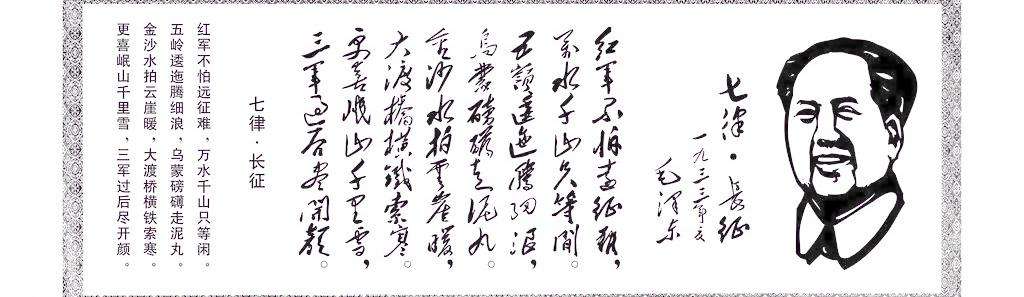 七律·長征
一九三三年
毛泽东
红军不怕远征難,
万水千山只等閒。
五嶺逶迤腾细浪,
烏蒙磅礴走泥丸。
金沙水拍雲崖暖,
大渡橋横鐵索寒。
更喜岷山千里雪,
三軍过后尽開顏。
七律·长征
红军不怕远征难,万水千山只等闲。
五岭逶迤腾细浪,乌蒙磅礴走泥丸。
金沙水拍云崖暖,大渡桥横铁索寒。
更喜岷山千里雪,三军过后尽开颜。